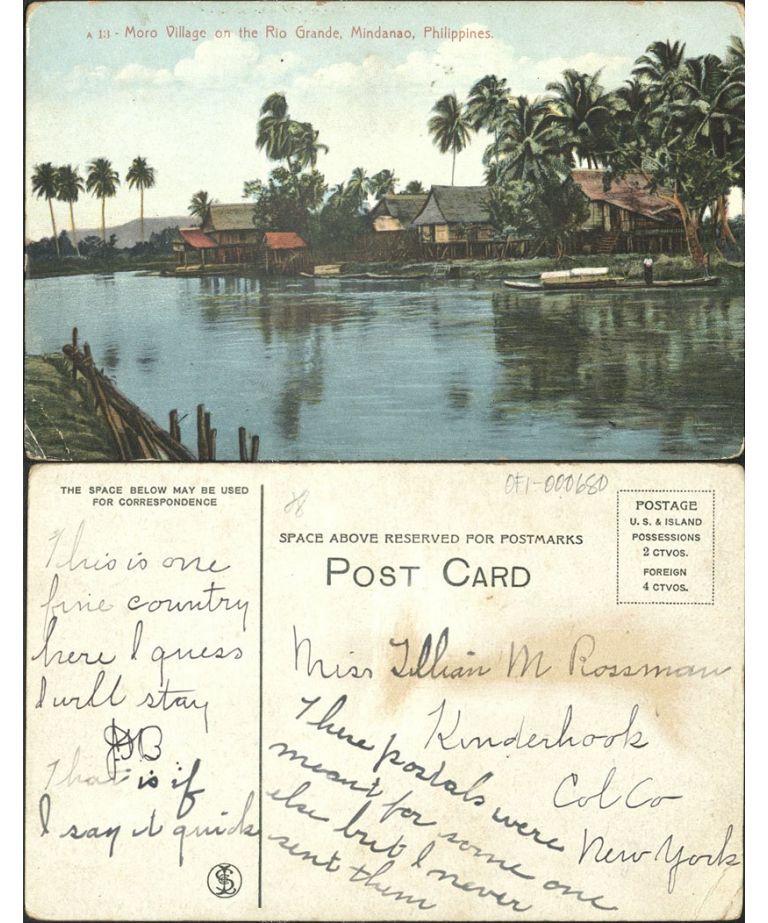 A 13 - Moro Village on the Rio Grande, Mindanao, Philippines.
THE SPACE BELOW MAY BE USED
FOR CORRESPONDENCE
This is one
fine country
here I guess
I will stay
JGB
That is if
I say it quick
OF1-000680
SPACE ABOVE RESERVED FOR POSTMARKS
POST CARD
POSTAGE
U. S. & ISLAND
POSSESSIONS
2 CTVOS.
FOREIGN
4 CTVOS.
Miss Lillian M Rossman
Kinderhook
Col Co
New York
These postals were
meant for some one
else but I never
sent them